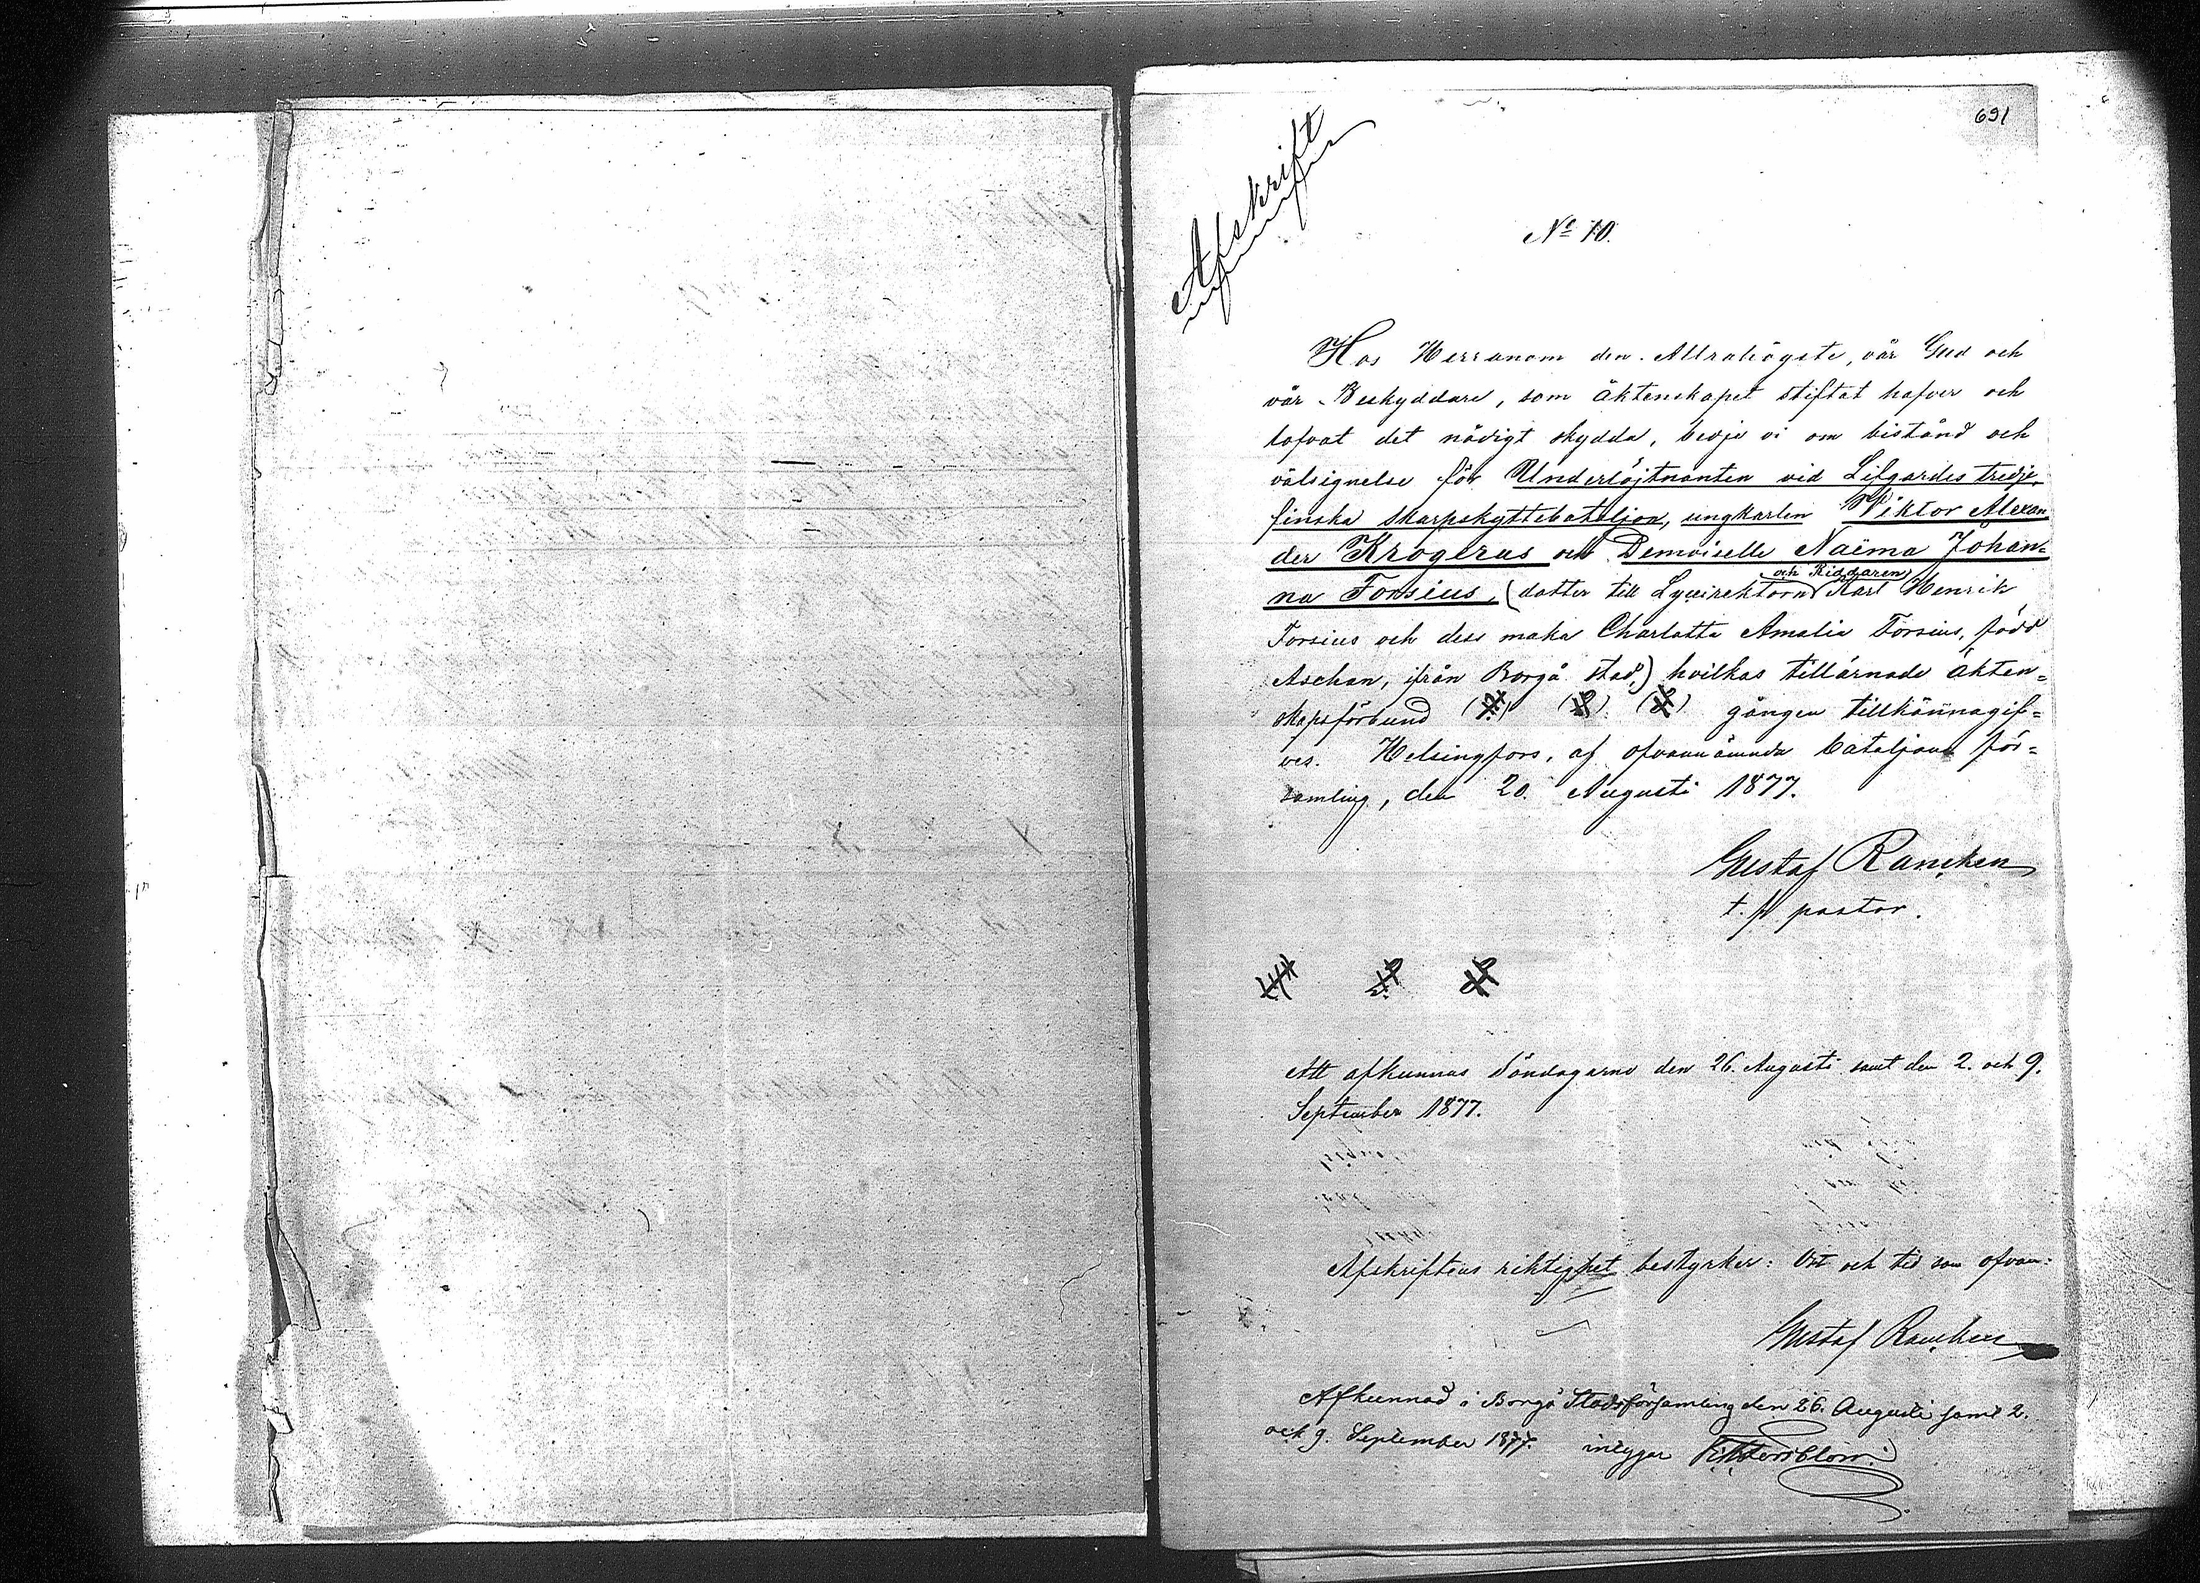 691
Afskrift
No 10.
Hos Herranom den Allrahögste, vår Gud och
vår Beskyddare, som äktenskapet stiftat hafver och
lofvat det nådigt skydda, bedje vi om bistånd och
välsignelse för Underlöjtnanten vid Lifgardes tredje
finska skarpskyttebataljon, ungkarlen Viktor Alexan
der Krogerus och Demoiselle Naëma Johan=
na Forsius, (dotter till Lyceirektorn och Riddaren Karl Henrik
Forsius och dess maka Charlotta Amalia Forsius, född
Aschan, ifrån Borgå stad,) hvilkas tillärnade äkten=
skapsförbund gången tillkännagif=
ves. Helsingfors, af ofvannämnda bataljons för=
samling, den 20. Augusti 1877.
Gustaf Rancken
t. f. pastor.
Att afkunnas Söndagarne den 26. Augusti samt den 2. och 9.
September 1877.
Afskriftens riktighet bestyrker: Ort och tid som ofvan:
Gustaf Rancken
Afkunnad i Borgå Stadsförsamling den 26. Augusti samt 2.
och 9. September 1877. intygar